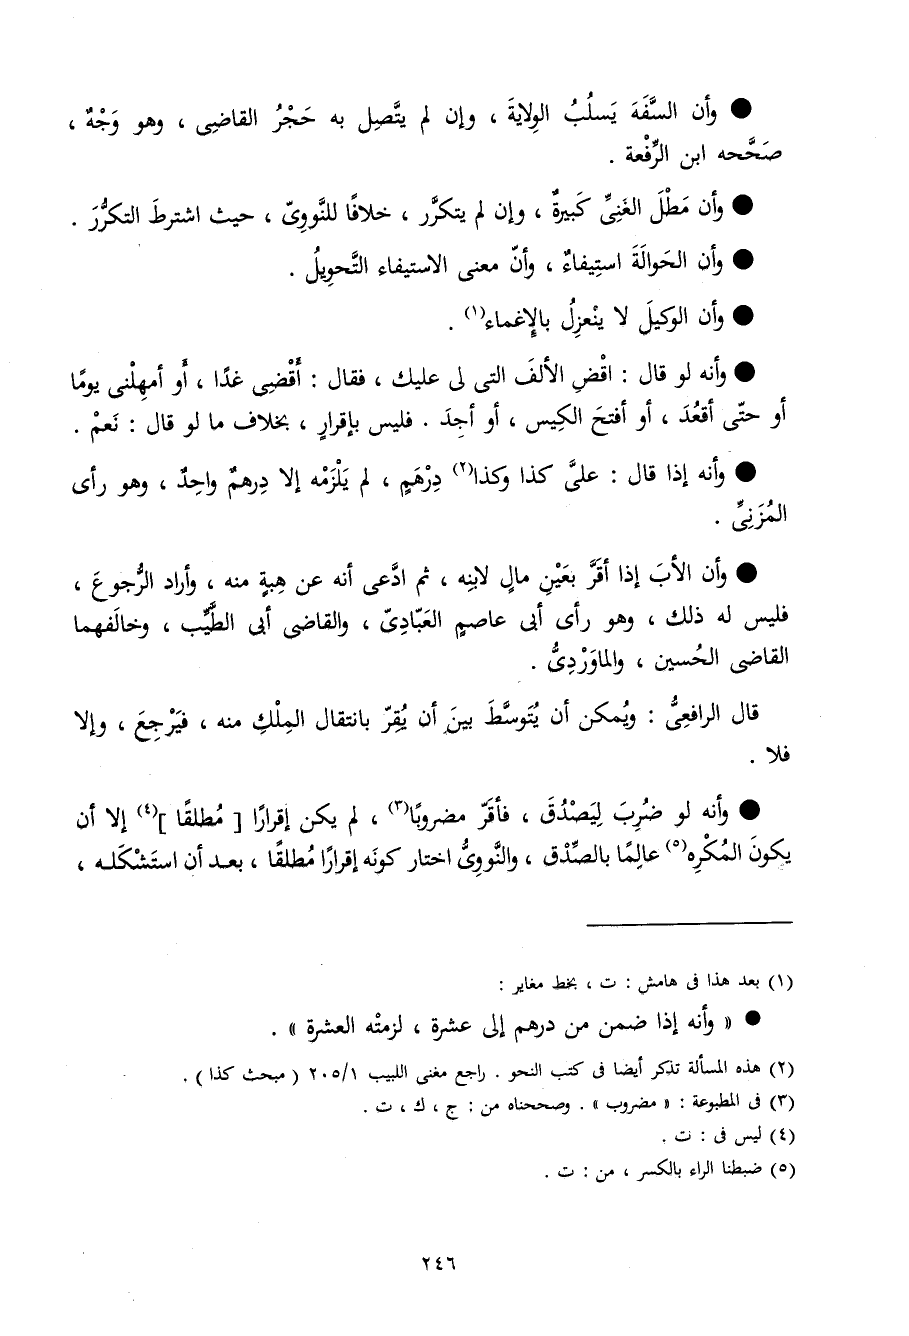 ● وأن السَّفَهَ يَسلُبُ الوِلايةَ ، وإن لم يتَّصِل به حَجْرُ القاضِى ، وهو وَجْهٌ ،
صَحَّحه ابن الرِّفْعة .
● وأن مَطْلَ الغَنِىِّ كَبيرةٌ ، وإن لم يتكرَّر ، خلافًا للنَّووِىّ ، حيث اشترطَ التكرُّرَ .
● وأن الحَوالَةَ استِيفاءٌ ، وأنّ معنى الاستيفاء التَّحوِيلُ .
● وأن الوكيلَ لا ينْعزِلُ بالإغماء(١) .
● وأنه لو قال : اقْضِ الألفَ التى لى عليك ، فقال : أَقْضِى غدًا ، أَو أمهِلْنى يومًا
أو حتّى أقعُدَ ، أو أفتحَ الكِيس ، أو أجِدَ . فليس بإقرارٍ ، بخلاف ما لو قال : نَعمْ .
● وأنه إذا قال : علىَّ كذا وكذا(٢) دِرْهَمٍ ، لم يَلْزَمْه إلا دِرهمٌ واحِدٌ ، وهو رأى
المُزَنِىِّ .
● وأن الأبَ إذا أقَرَّ بعَيْنِ مالٍ لابنِه ، ثم ادَّعى أنه عن هِبةٍ منه ، وأراد الرُّجوعَ ،
فليس له ذلك ، وهو رأى أبى عاصمٍ العَبّادِىّ ، والقاضى أبى الطَّيِّب ، وخالَفهما
القاضى الحُسين ، والماوَرْدِىُّ .
قال الرافعِىُّ : ويُمكن أن يُتَوسَّطَ بينَ أن يُقِرّ بانتقال المِلْكِ منه ، فيَرْجِعَ ، وإلا
فلا .
● وأنه لو ضُرِبَ لِيَصْدُقَ ، فأقَرّ مضروبًا(٣) ، لم يكن إقرارًا [ مُطلقًا ](٤) إلا أن
يكونَ المُكْرِه(٥) عالِمًا بالصِّدْق ، والنَّووِىُّ اختار كونَه إقرارًا مُطلقًا ، بعد أن استَشْكَله ،
(١) بعد هذا فى هامش : ت ، بخط مغاير :
● « وأنه إذا ضمن من درهم إلى عشرة ، لزمتْه العشرة » .
(٢) هذه المسألة تذكر أيضا فى كتب النحو . راجع مغنى اللبيب ٢٠٥/١ ( مبحث كذا ) .
(٣) فى المطبوعة : « مضروب » . وصححناه من : ج ، ك ، ت .
(٤) ليس فى : ت .
(٥) ضبطنا الراء بالكسر ، من : ت .
٢٤٦